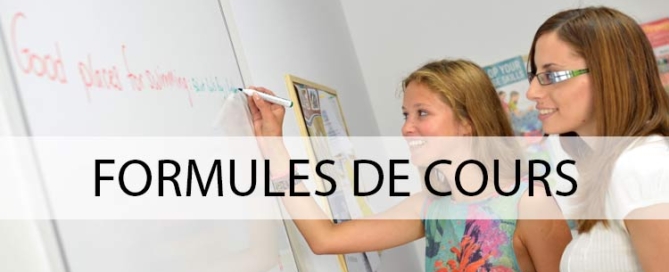 Good places for swimming
FORMULES DE COURS